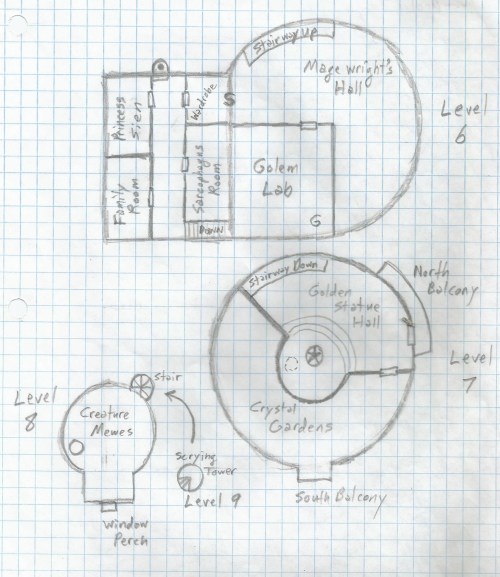 Stairway Up
Magewright's
Hall
Level
6
Princess
Sien
Wardrobe
S
Family
Room
Sarcophagus
Room
Down
Golem
Lab
G
Stairway Down
Golden
Statue
Hall
North
Balcony
Level
7
Crystal
Gardens
South Balcony
Level
8
Stair
Creature
Mewes
Window
Perch
Scrying
Tower
Level 9